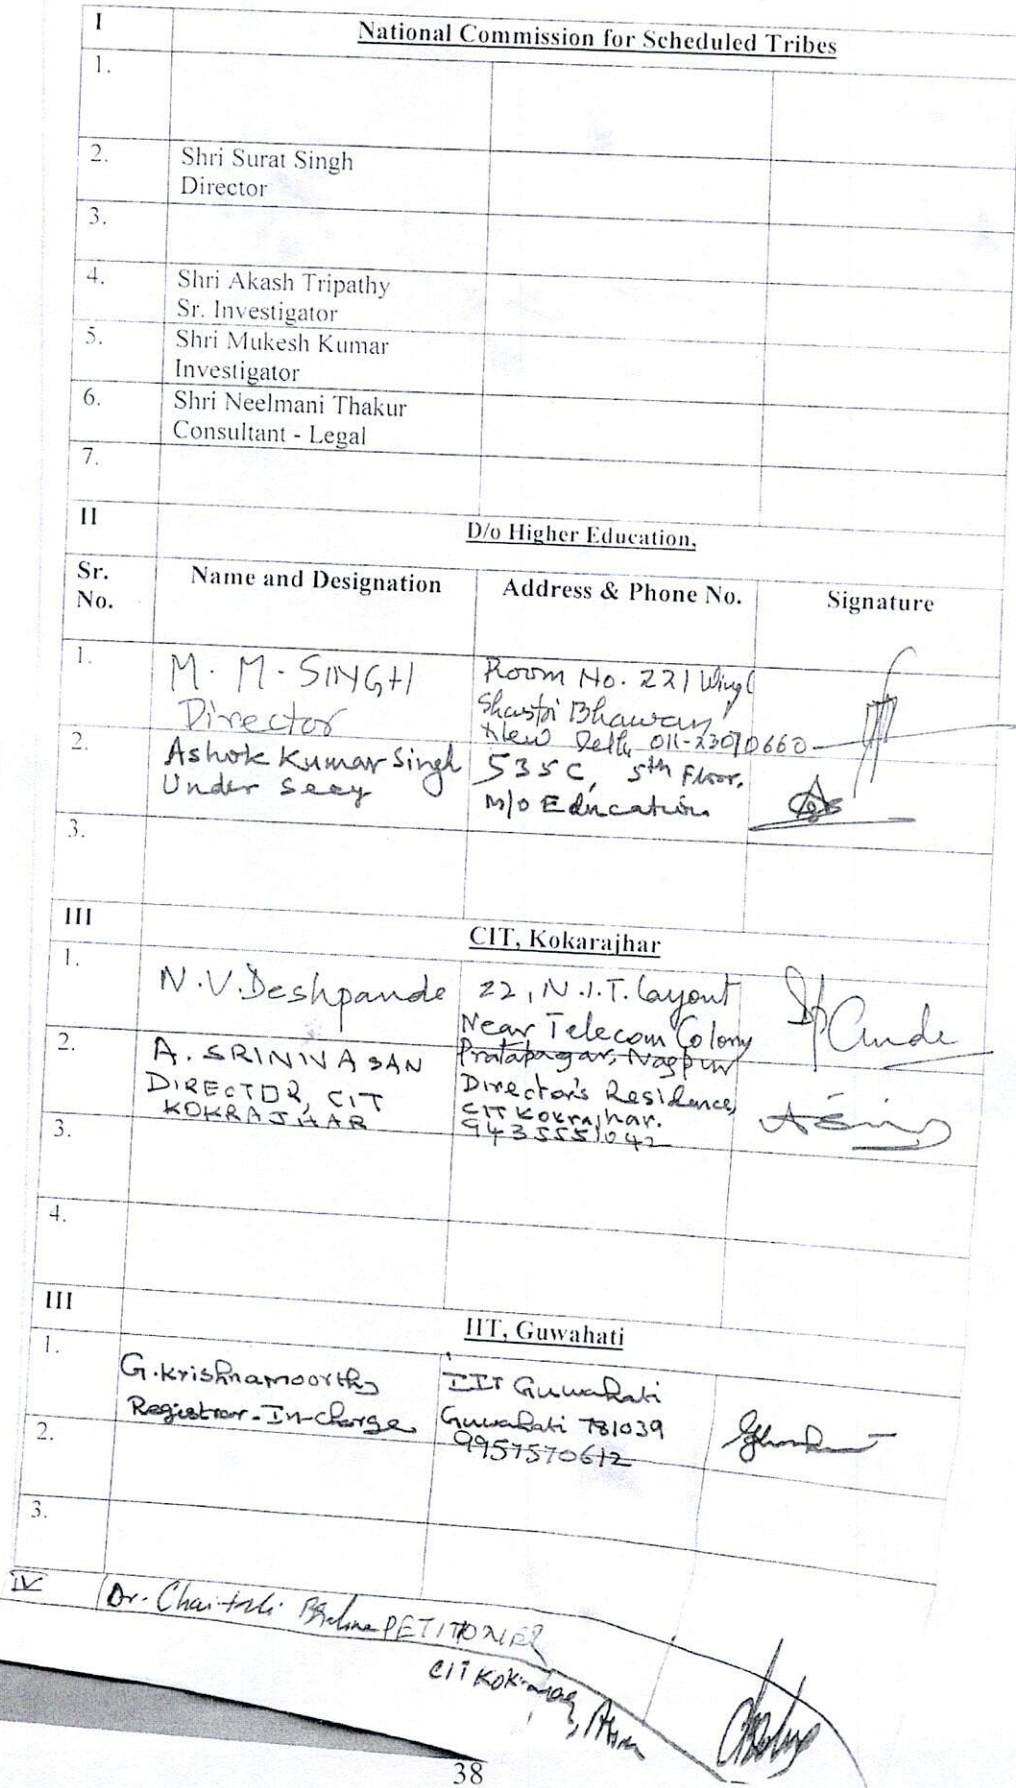 I National Commission for Scheduled Tribes
1.
2. Shri Surat Singh
Director
3.
4. Shri Akash Tripathy
Sr. Investigator
5. Shri Mukesh Kumar
Investigator
6. Shri Neelmani Thakur
Consultant - Legal
7.
II D/o Higher Education,
Sr. No. Name and Designation Address & Phone No. Signature
1. M. M. SINGH
Director
Room No. 221 Wing C
Shastri Bhawan,
New Delhi, 011-23070660
2. Ashok Kumar Singh
Under Secy
535 C, 5th Floor,
M/o Education
3.
III CIT, Kokarajhar
1. N.V. Deshpande
22, N.I.T. Layout
Near Telecom Colony
Pratapnagar, Nagpur
2. A. SRINIVASAN
DIRECTOR, CIT
KOKRAJHAR
Director's Residence,
CIT Kokrajhar.
9435551042
3.
4.
III IIT, Guwahati
1. G. Krishnamoorthy
Registrar-In-Charge
IIT Guwahati
Guwahati 781039
9957570612
2.
3.
IV Dr. Chaitali PETITIONER
CIT
38